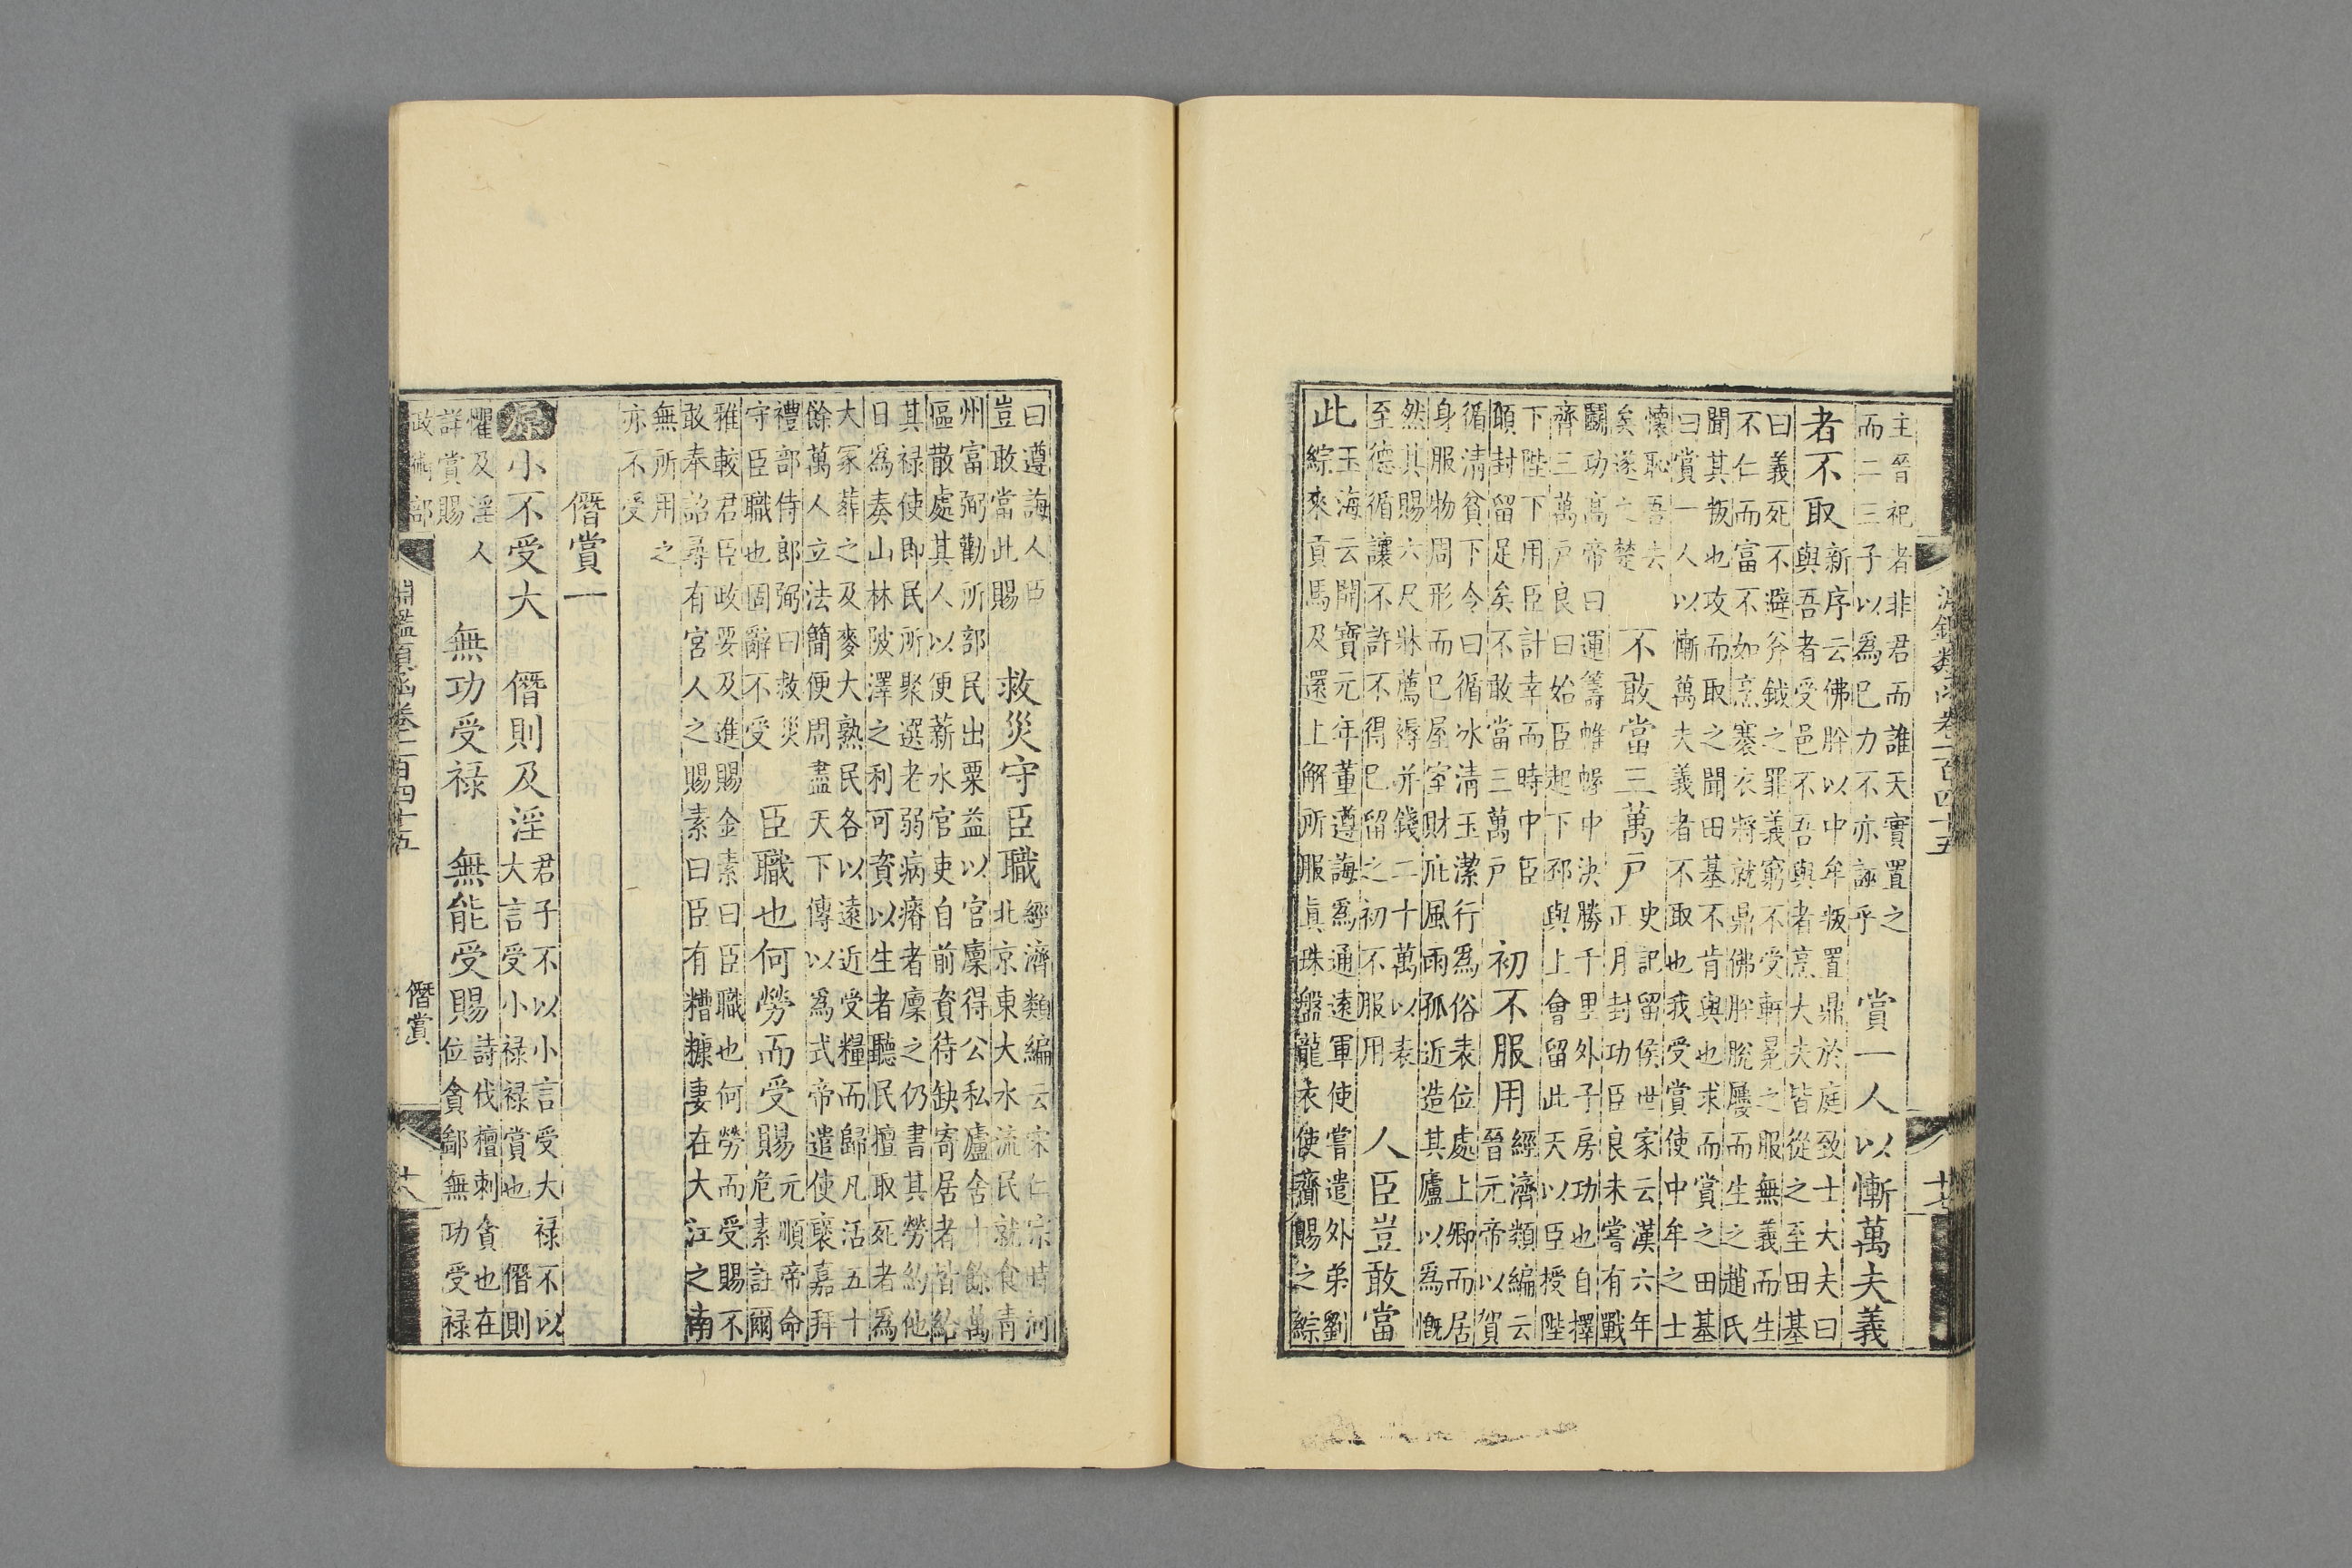 淵鑑類函卷一百四十五
十七
主晉祀者非君而誰天實置之
而二三子以爲己力不亦誣乎
賞一人以慚萬夫義
者不取
新序云佛肸以中牟叛置鼎於庭致士大夫曰
與吾者受邑不吾與者烹大夫皆從之至田基
曰義死不避斧鉞之罪義窮不受軒冕之服無義而生
不仁而富不如烹褰衣將就鼎佛肸脫屨而生之趙氏
聞其叛也攻而取之聞田基不肯與也求而賞之田基
曰賞一人以慚萬夫義者不取也我受賞使中牟之士
懷恥吾去
矣遂之楚
不敢當三萬戶
史記留侯世家云漢六年
正月封功臣良未嘗有戰
鬬功高帝曰運籌帷幄中決勝千里外子房功也自擇
齊三萬戶良曰始臣起下邳與上會留此天以臣授陛
下陛下用臣計幸而時中臣
頋封留足矣不敢當三萬戶
初不服用
經濟類編云
晉元帝以賀
循清貧下令曰循冰清玉潔行爲俗表位處上卿而居
身服物周形而已屋室財庇風雨孤近造其廬以爲慨
然其賜六尺牀薦褥并錢二十萬以表
至德循讓不許不得已留之初不服用
人臣豈敢當
此
玉海云開寶元年董遵誨爲通遠軍使嘗遣外弟劉
綜來貢馬及還上解所服眞珠盤龍衣使齎賜之綜
曰遵誨人臣
豈敢當此賜
救災守臣職
經濟類編云宋仁宗時河
北京東大水流民就食青
州富弼勸所部民出粟益以官廩得公私廬舍十餘萬
區散處其人以便薪水官吏自前資待缺寄居者皆給
其祿使即民所聚選老弱病瘠者廩之仍書其勞約他
日爲奏山林陂澤之利可資以生者聽民擅取死者爲
大冢葬之及麥大熟民各以遠近受糧而歸凡活五十
餘萬人立法簡便周盡天下傳以爲式帝遣使襃嘉拜
禮部侍郎弼曰救災
守臣職也固辭不受
臣職也何勞而受賜
元順帝命
危素註爾
雅較君臣政要及進賜金素曰臣職也何勞而受賜不
敢奉詔尋有宮人之賜素曰臣有糟糠妻在大江之南
無所用之
亦不受
僭賞一
原
小不受大
僭則及淫
君子不以小言受大祿不以
大言受小祿祿賞也僭則
懼及淫人
無功受祿
無能受賜
詩伐檀刺貪也在
位貪鄙無功受祿
詳賞賜
政術部
淵鑑類函卷一百四十五
僭賞
十八